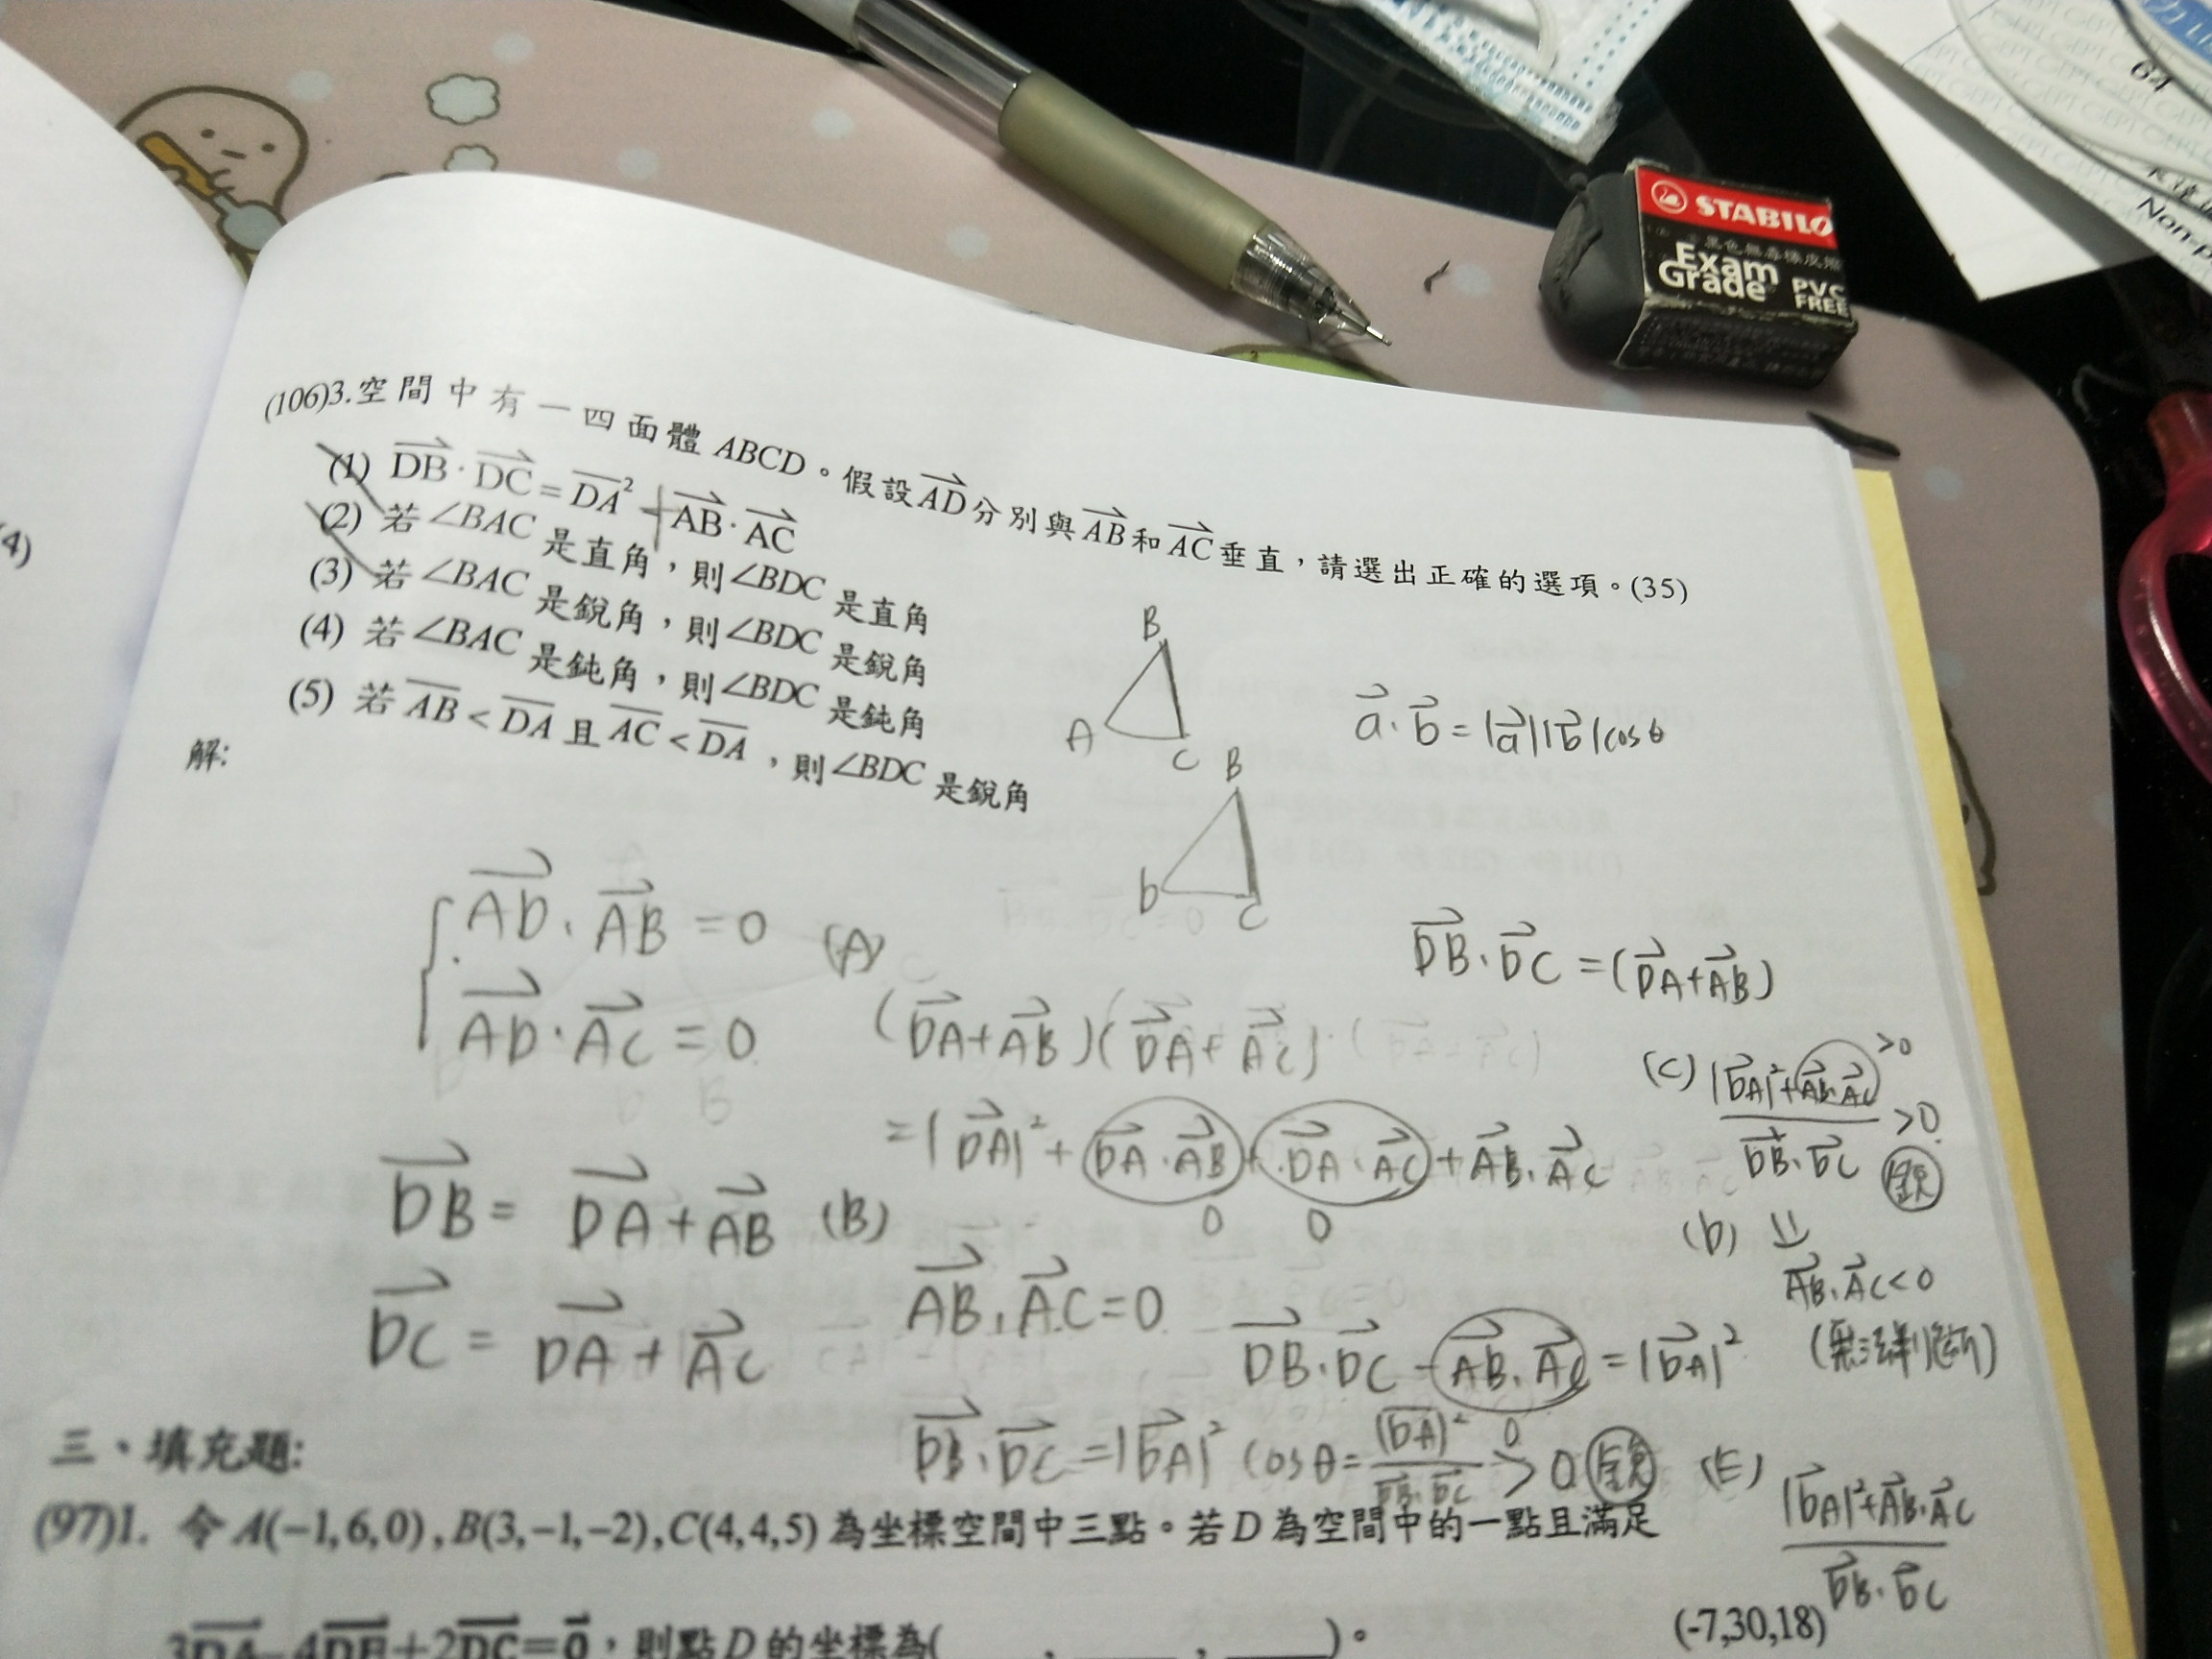 STABILO
Exam
Grade
PVC
FREE
64
Non-p
4)
(106)3.空間中有一四面體ABCD。假設AD分別與AB和AC垂直,請選出正確的選項。(35)
(1) DB·DC=DA²+AB·AC
(2) 若∠BAC是直角,則∠BDC是直角
(3) 若∠BAC是銳角,則∠BDC是銳角
(4) 若∠BAC是鈍角,則∠BDC是鈍角
(5) 若AB<DA且AC<DA,則∠BDC是銳角
解:
B
A
C
a·b=|a||b|cosθ
B
D
C
AD·AB=0
AD·AC=0
DB=DA+AB
DC=DA+AC
(A)
(DA+AB)(DA+AC)
=|DA|²+DA·AB+DA·AC+AB·AC
0 0
(B)
AB·AC=0
DB·DC-AB·AC=|DA|²
0
DB·DC=|DA|² cosθ=|DA|²/DB·DC>0 銳
DB·DC=(DA+AB)
(C) |DA|²+AB·AC/DB·DC>0
>0
銳
(D)
AB·AC<0
(無法判斷)
(E) |DA|²+AB·AC/DB·DC
三、填充題:
(97)1. 令A(−1,6,0),B(3,−1,−2),C(4,4,5)為坐標空間中三點。若D為空間中的一點且滿足
3DA−4DB+2DC=0,則點D的坐標為(____,____,____)。 (-7,30,18)